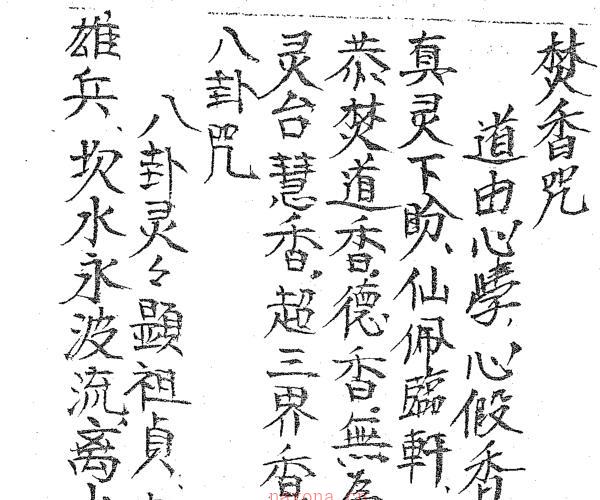 焚香咒
道由心學，心假香
真灵下盼、仙佩臨軒、
恭焚道香、德香、無為
灵台慧香，超三界香
八卦咒
八卦灵々顕祖貞、
雄兵、坎水永波流、离